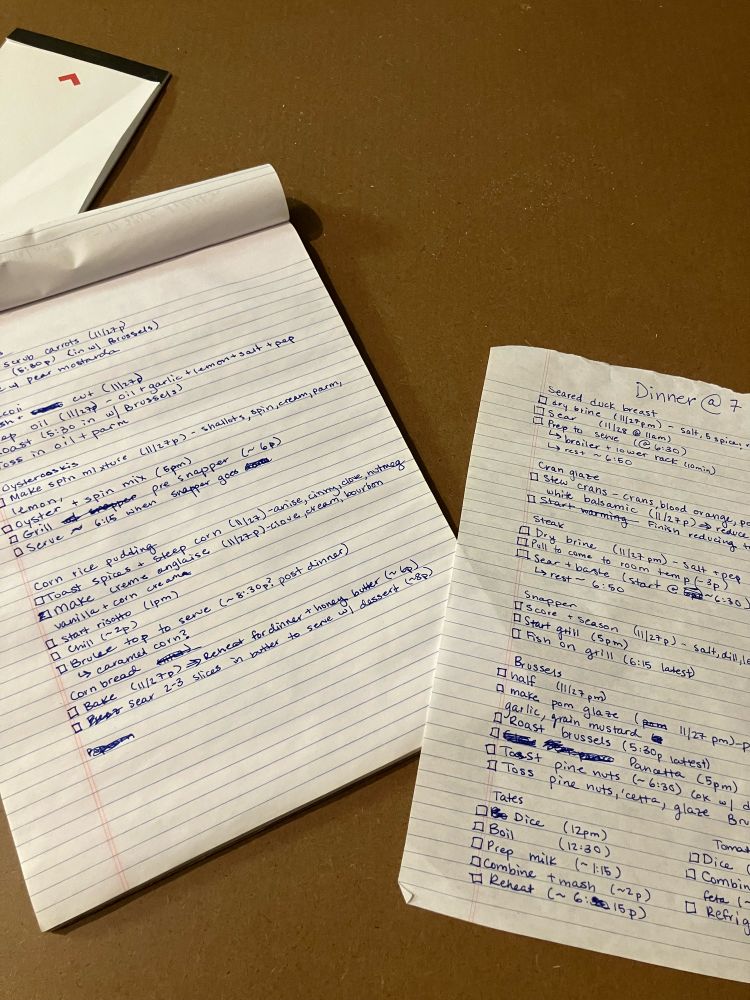 scrub carrots (11/27p)
(5:30p) (in w/ Brussels)
w/ pear mostarda
cut (11/27p)
oil (11/27p) - oil + garlic + lemon + salt + pep
roast (5:30 in w/ Brussels)
toss in oil + parm
Oysterooskis
Make spin mixture (11/27p) - shallots, spin, cream, parm,
lemon,
Oyster + spin mix (5pm)
Grill pre snapper (~ 6p)
Serve ~ 6:15 when snapper goes
Corn rice pudding
Toast spices + steep corn (11/27) - anise, cinny, clove, nutmeg
Make creme anglaise (11/27p) - clove, cream, bourbon
vanilla + corn creama
Start risotto (1pm)
Chill (~2p)
Brulee top to serve (~ 8:30p? post dinner)
↳ caramel corn?
Corn bread
Bake (11/27p) ⇒ Reheat for dinner + honey butter (~ 6p)
sear 2-3 slices in butter to serve w/ dessert (~8p)
Dinner @ 7
Seared duck breast
dry brine (11/27pm) - salt, 5 spice,
Sear (11/28 @ 11am)
Prep to serve (@ 6:30)
↳ broiler + lower rack (10min)
↳ rest ~ 6:50
Cran glaze
Stew crans - crans, blood orange,
white balsamic (11/27p) ⇒ reduce
Start warming Finish reducing
Steak
Dry brine (11/27 pm) - salt + pep
Pull to come to room temp (~3p)
Sear + baste (start @ ~6:30)
↳ rest ~ 6:50
Snapper
Score + season (11/27p) - salt, dill,
Start grill (5pm)
Fish on grill (6:15 latest)
Brussels
half (11/27pm)
make pom glaze (11/27 pm) -
garlic, grain mustard
Roast brussels (5:30p latest)
Pancetta (5pm)
Toast pine nuts (~6:30) (ok w/
Toss pine nuts, 'cetta, glaze
Tates
Dice (12pm)
Boil (12:30)
Prep milk (~ 1:15)
Combine + mash (~2p)
Reheat (~ 6:15p)
Dice
feta